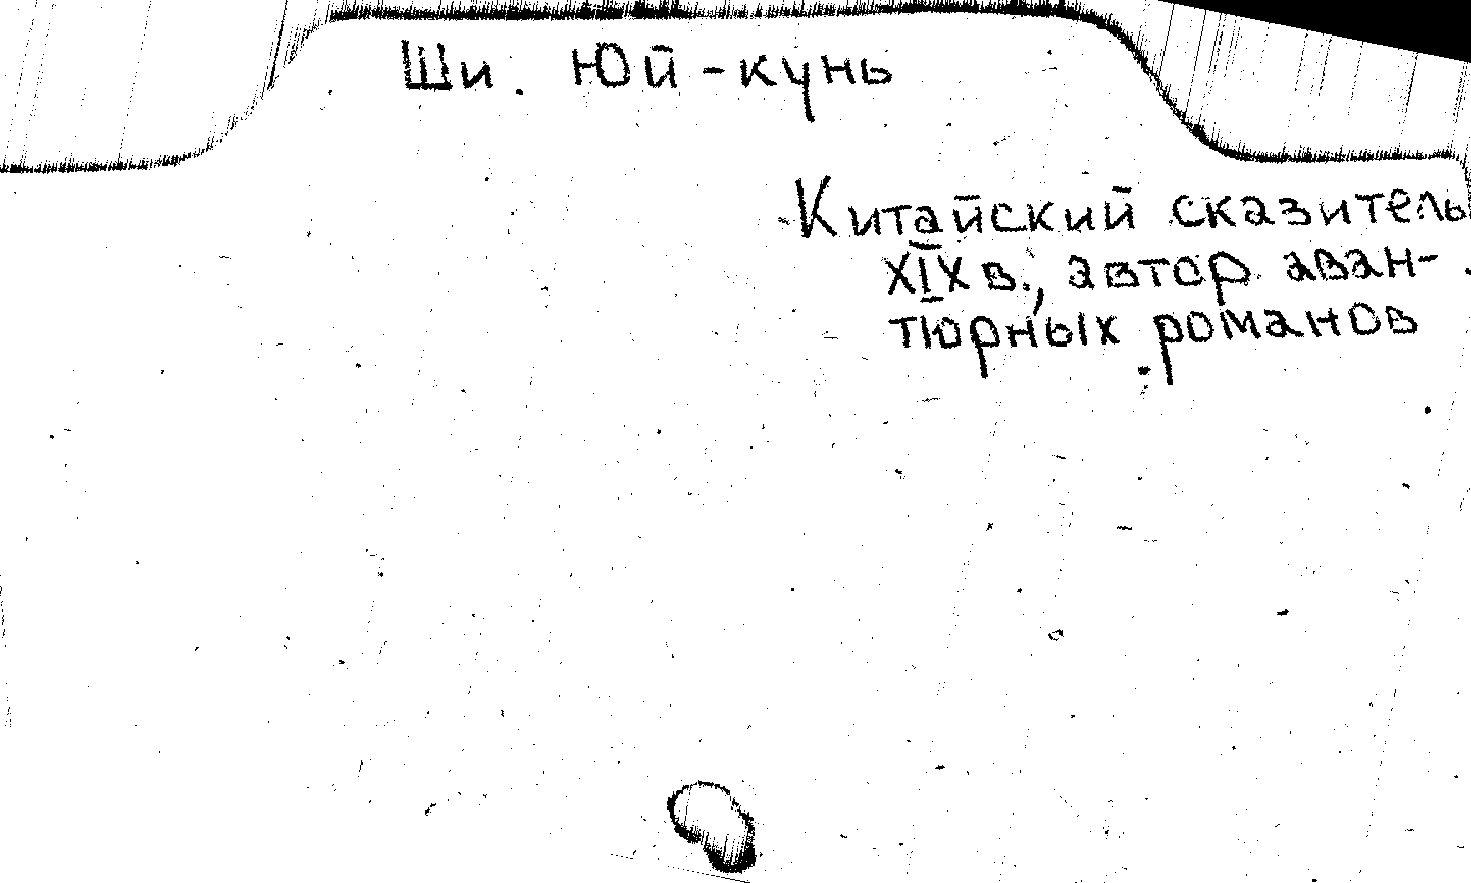 Ши. Юй-кунь
Китайский сказитель
XIX в., автор аван-
тюрных романов